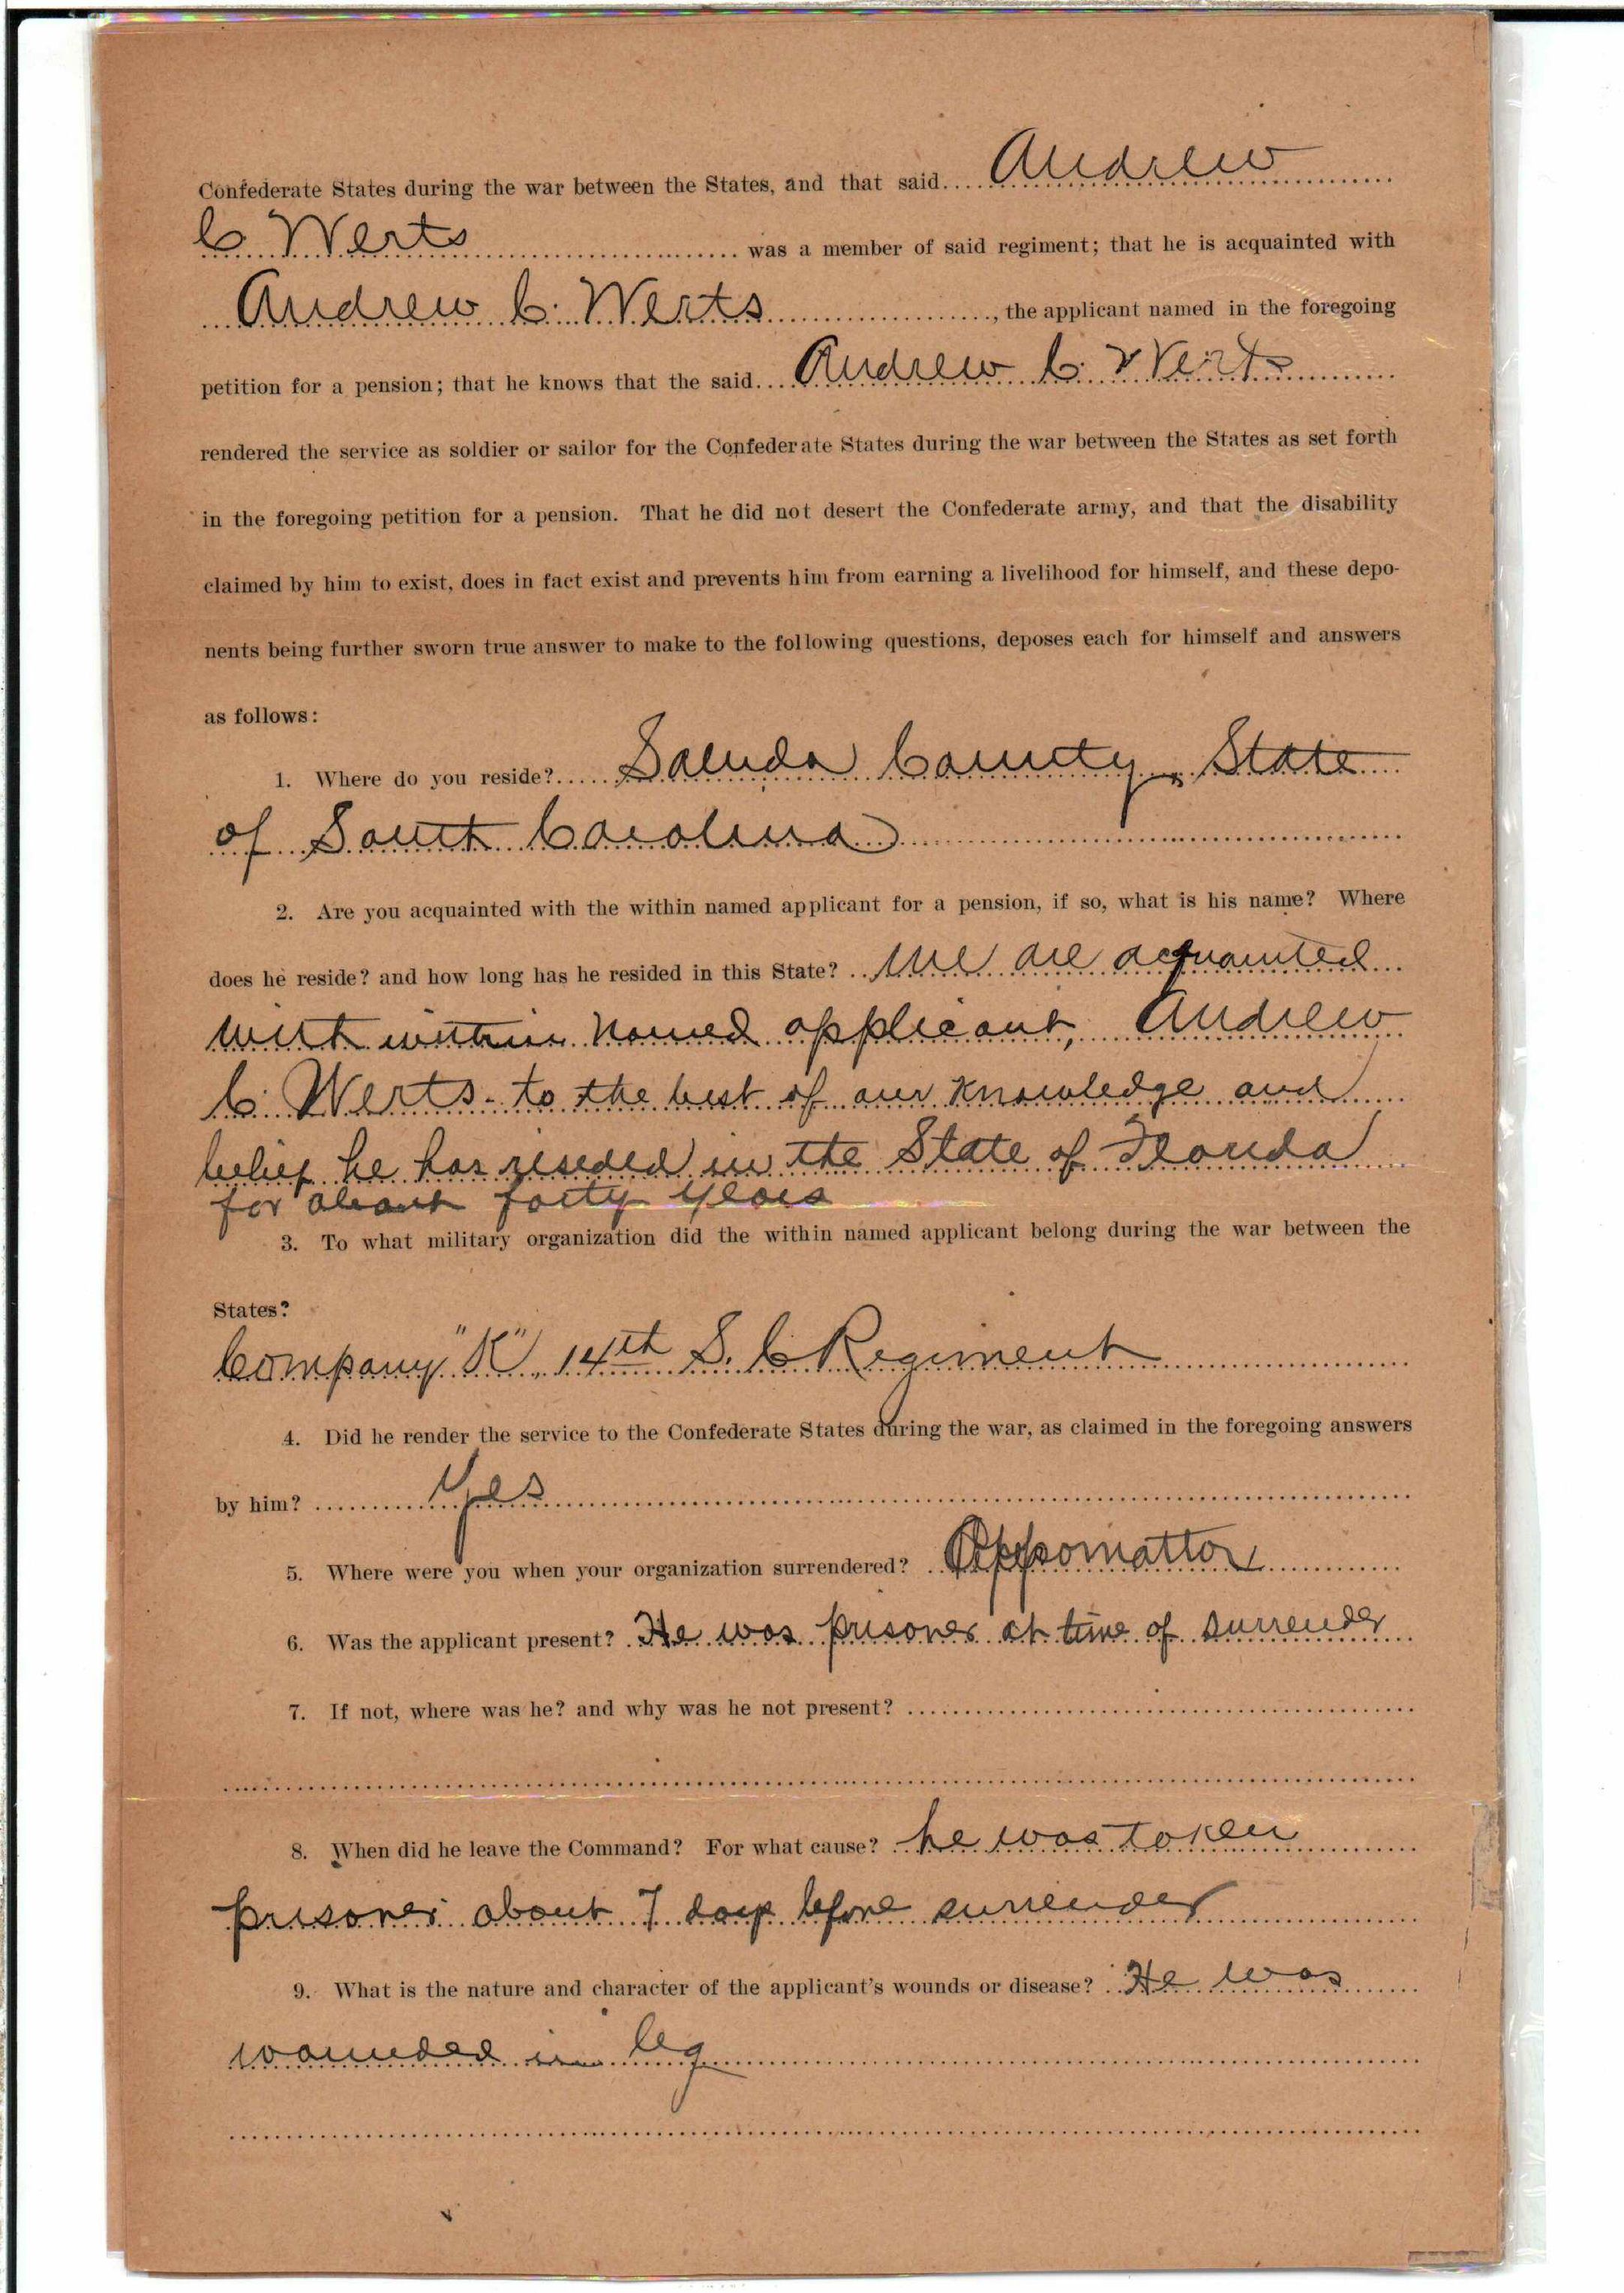 Confederate States during the war between the States, and that said Andrew
C Werts was a member of said regiment; that he is acquainted with
Andrew C. Werts, the applicant named in the foregoing
petition for a pension; that he knows that the said Andrew C. Werts
rendered the service as soldier or sailor for the Confederate States during the war between the States as set forth
in the foregoing petition for a pension. That he did not desert the Confederate army, and that the disability
claimed by him to exist, does in fact exist and prevents him from earning a livelihood for himself, and these depo-
nents being further sworn true answer to make to the following questions, deposes each for himself and answers
as follows:
1. Where do you reside? Saluda County, State
of South Carolina
2. Are you acquainted with the within named applicant for a pension, if so, what is his name? Where
does he reside? and how long has he resided in this State? We are acquainted
with within named applicant, Andrew
C. Werts - to the best of our knowledge and
belief he has resided in the State of Florida
for about forty years
3. To what military organization did the within named applicant belong during the war between the
States?
Company "K", 14th S. C Regiment
4. Did he render the service to the Confederate States during the war, as claimed in the foregoing answers
by him? Yes
5. Where were you when your organization surrendered? Appomattox
6. Was the applicant present? He was prisoner at time of surrender
7. If not, where was he? and why was he not present?
8. When did he leave the Command? For what cause? he was taken
prisoner about 7 days before surrender
9. What is the nature and character of the applicant's wounds or disease? He was
wounded in leg